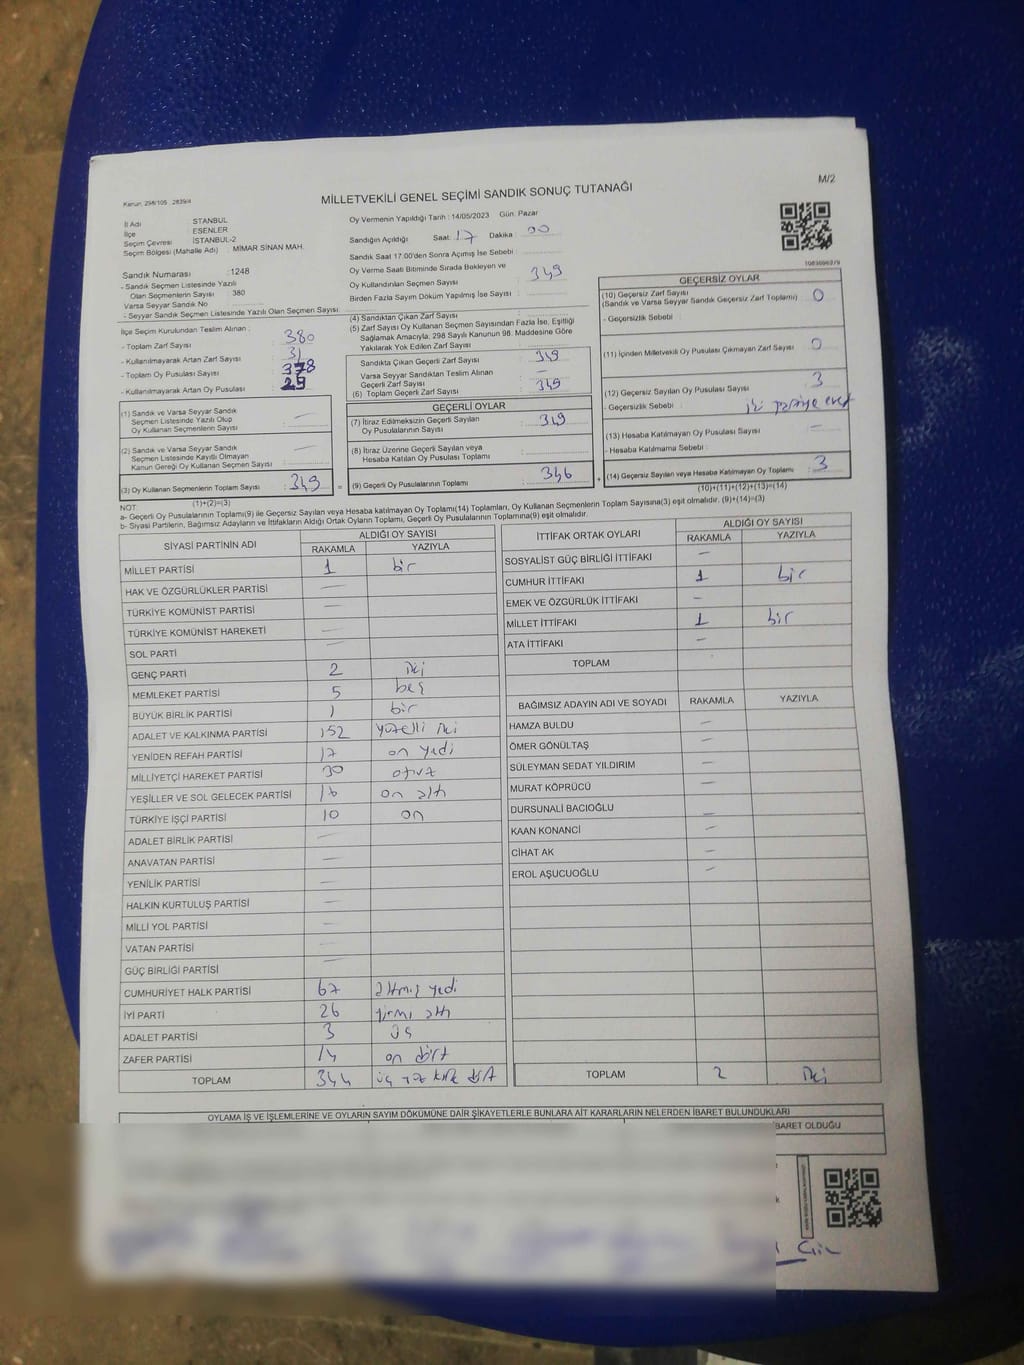 M/2
Kanun: 298/105 , 2839/4
MİLLETVEKİLİ GENEL SEÇİMİ SANDIK SONUÇ TUTANAĞI
İl Adı : İSTANBUL
İlçe : ESENLER
Seçim Çevresi : İSTANBUL-2
Seçim Bölgesi (Mahalle Adı) : MİMAR SİNAN MAH.
Sandık Numarası : 1248
- Sandık Seçmen Listesinde Yazılı
Olan Seçmenlerin Sayısı : 380
Varsa Seyyar Sandık No :
- Seyyar Sandık Seçmen Listesinde Yazılı Olan Seçmen Sayısı :
Oy Vermenin Yapıldığı Tarih : 14/05/2023 Gün: Pazar
Sandığın Açıldığı Saat: 17 Dakika : 00
Sandık Saat 17:00'den Sonra Açılmış İse Sebebi :
Oy Verme Saati Bitiminde Sırada Bekleyen ve
Oy Kullandırılan Seçmen Sayısı : 349
Birden Fazla Sayım Döküm Yapılmış İse Sayısı :
İlçe Seçim Kurulundan Teslim Alınan :
- Toplam Zarf Sayısı : 380
- Kullanılmayarak Artan Zarf Sayısı : 31
- Toplam Oy Pusulası Sayısı : 378
- Kullanılmayarak Artan Oy Pusulası : 29
(1) Sandık ve Varsa Seyyar Sandık
Seçmen Listesinde Yazılı Olup
Oy Kullanan Seçmenlerin Sayısı :
(2) Sandık ve Varsa Seyyar Sandık
Seçmen Listesinde Kayıtlı Olmayan
Kanun Gereği Oy Kullanan Seçmen Sayısı :
(3) Oy Kullanan Seçmenlerin Toplam Sayısı : 349
(1)+(2)=(3)
(4) Sandıktan Çıkan Zarf Sayısı :
(5) Zarf Sayısı Oy Kullanan Seçmen Sayısından Fazla İse, Eşitliği
Sağlamak Amacıyla, 298 Sayılı Kanunun 98. Maddesine Göre
Yakılarak Yok Edilen Zarf Sayısı
Sandıkta Çıkan Geçerli Zarf Sayısı : 349
Varsa Seyyar Sandıktan Teslim Alınan
Geçerli Zarf Sayısı : —
(6) Toplam Geçerli Zarf Sayısı : 349
GEÇERLİ OYLAR
(7) İtiraz Edilmeksizin Geçerli Sayılan
Oy Pusulalarının Sayısı : 349
(8) İtiraz Üzerine Geçerli Sayılan veya
Hesaba Katılan Oy Pusulası Toplamı :
(9) Geçerli Oy Pusulalarının Toplamı : 346
GEÇERSİZ OYLAR
(10) Geçersiz Zarf Sayısı : 0
(Sandık ve Varsa Seyyar Sandık Geçersiz Zarf Toplamı)
- Geçersizlik Sebebi :
(11) İçinden Milletvekili Oy Pusulası Çıkmayan Zarf Sayısı : 0
(12) Geçersiz Sayılan Oy Pusulası Sayısı : 3
- Geçersizlik Sebebi : iki partiye evet
(13) Hesaba Katılmayan Oy Pusulası Sayısı : —
- Hesaba Katılmama Sebebi :
(14) Geçersiz Sayılan veya Hesaba Katılmayan Oy Toplamı : 3
(10)+(11)+(12)+(13)=(14)
NOT:
a- Geçerli Oy Pusulalarının Toplamı(9) ile Geçersiz Sayılan veya Hesaba katılmayan Oy Toplamı(14) Toplamları, Oy Kullanan Seçmenlerin Toplam Sayısına(3) eşit olmalıdır. (9)+(14)=(3)
b- Siyasi Partilerin, Bağımsız Adayların ve İttifakların Aldığı Ortak Oyların Toplamı, Geçerli Oy Pusulalarının Toplamına(9) eşit olmalıdır.
SİYASİ PARTİNİN ADI ALDIĞI OY SAYISI
RAKAMLA YAZIYLA
MİLLET PARTİSİ 1 bir
HAK VE ÖZGÜRLÜKLER PARTİSİ —
TÜRKİYE KOMÜNİST PARTİSİ —
TÜRKİYE KOMÜNİST HAREKETİ —
SOL PARTİ —
GENÇ PARTİ 2 iki
MEMLEKET PARTİSİ 5 beş
BÜYÜK BİRLİK PARTİSİ 1 bir
ADALET VE KALKINMA PARTİSİ 152 yüzelli iki
YENİDEN REFAH PARTİSİ 17 on yedi
MİLLİYETÇİ HAREKET PARTİSİ 30 otuz
YEŞİLLER VE SOL GELECEK PARTİSİ 16 on altı
TÜRKİYE İŞÇİ PARTİSİ 10 on
ADALET BİRLİK PARTİSİ —
ANAVATAN PARTİSİ —
YENİLİK PARTİSİ —
HALKIN KURTULUŞ PARTİSİ —
MİLLİ YOL PARTİSİ —
VATAN PARTİSİ —
GÜÇ BİRLİĞİ PARTİSİ —
CUMHURİYET HALK PARTİSİ 67 altmış yedi
İYİ PARTİ 26 yirmi altı
ADALET PARTİSİ 3 üç
ZAFER PARTİSİ 14 on dört
TOPLAM 344 üç yüz kırk dört
İTTİFAK ORTAK OYLARI ALDIĞI OY SAYISI
RAKAMLA YAZIYLA
SOSYALİST GÜÇ BİRLİĞİ İTTİFAKI —
CUMHUR İTTİFAKI 1 bir
EMEK VE ÖZGÜRLÜK İTTİFAKI —
MİLLET İTTİFAKI 1 bir
ATA İTTİFAKI —
TOPLAM
BAĞIMSIZ ADAYIN ADI VE SOYADI RAKAMLA YAZIYLA
HAMZA BULDU —
ÖMER GÖNÜLTAŞ —
SÜLEYMAN SEDAT YILDIRIM —
MURAT KÖPRÜCÜ —
DURSUNALİ BACIOĞLU —
KAAN KONANCİ —
CİHAT AK —
EROL AŞUCUOĞLU —
TOPLAM 2 iki
OYLAMA İŞ VE İŞLEMLERİNE VE OYLARIN SAYIM DÖKÜMÜNE DAİR ŞİKAYETLERLE BUNLARA AİT KARARLARIN NELERDEN İBARET BULUNDUKLARI
BARET OLDUĞU